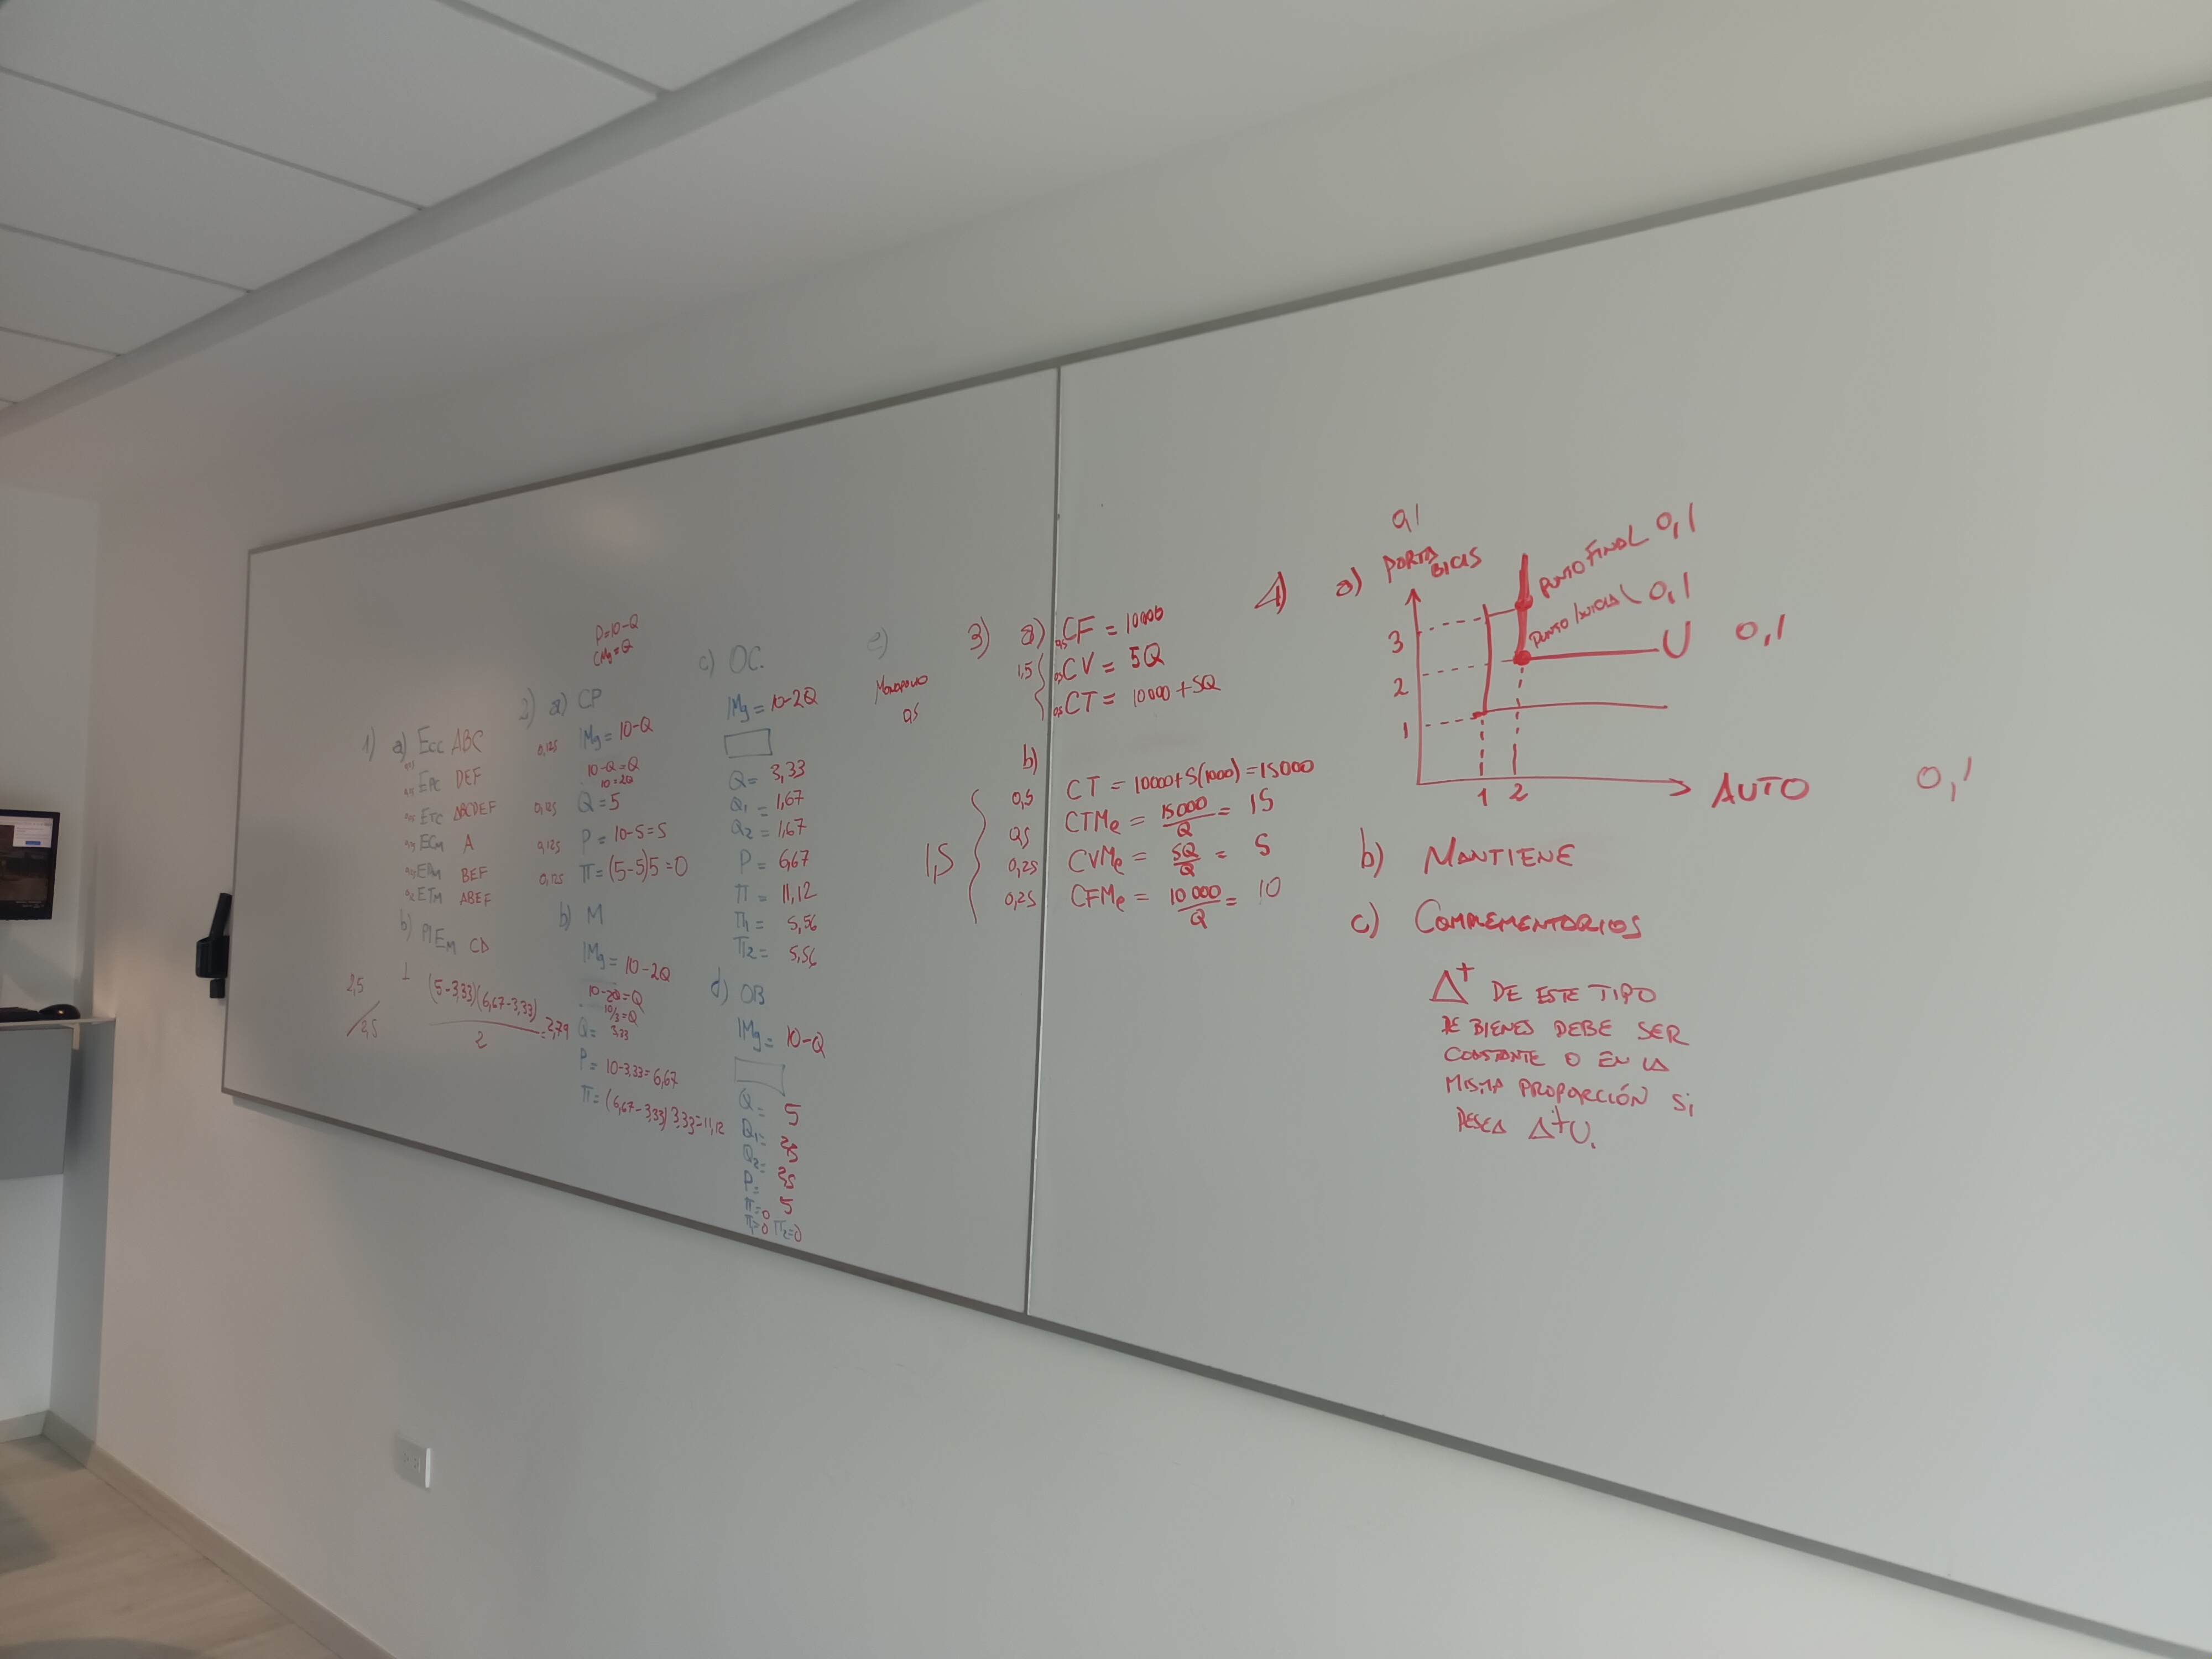 1) a) Ecc ABC
EPC DEF
ETC ABCDEF
ECM A
EPM BEF
ETM ABEF
b) PIEM CD
2,5
(5-3,33)(6,67-3,33)
2
= 2,79
P=10-Q
CMg=Q
2) a) CP
0,125 IMg = 10-Q
10-Q=Q
10=2Q
0,125 Q = 5
0,125 P = 10-5=5
0,125 π = (5-5)5=0
b) M
IMg = 10-2Q
10-2Q=Q
10/3=Q
Q= 3,33
P= 10-3,33=6,67
π= (6,67-3,33)3,33=11,12
c) OC.
IMg = 10-2Q
Q= 3,33
Q1 = 1,67
Q2 = 1,67
P= 6,67
π = 11,12
π1 = 5,56
π2 = 5,56
d) OB
IMg= 10-Q
Q= 5
Q1=
Q2=
P=
5
π=0
π1=0 π2=0
e)
MONOPOLIO
0,5
3) a) 0,5 CF = 10000
1,5 0,5 CV = 5Q
0,5 CT = 10000+5Q
b)
1,5
0,5 CT = 10000+5(1000)=15000
0,5 CTMe = 15000/Q = 15
0,25 CVMe = 5Q/Q = 5
0,25 CFMe = 10000/Q = 10
4) a)
0,1
PORTA BICIS
3
2
1
1 2
PUNTO FINAL 0,1
PUNTO INICIAL 0,1
U 0,1
AUTO 0,1
b) MANTIENE
c) COMMEMENTARIOS
Δ+ DE ESTE TIPO
DE BIENES DEBE SER
CONSTANTE O EN LA
MISMA PROPORCIÓN SI
DESEA Δ+U.